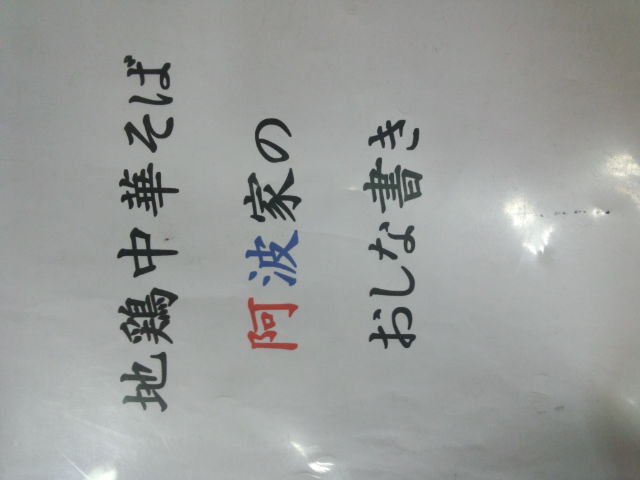 地鶏中華そば
阿波家の
おしな書き